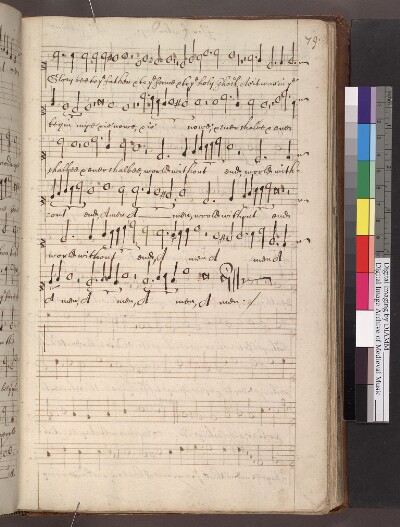 79.
Glory bee to ye father & to ye sonne & to ye holy Ghost, As it was in ye
begin ning & is nowe, & is nowe, & ever shalbe & ever
shalbee & ever shalbee, world without ende, world with
out ende, Amen, A men, world without ende
world without ende, A men A men A
A men, A men, A men, A men :/
Digital Imaging by DIAMM
Digital Image Archive of Medieval Music